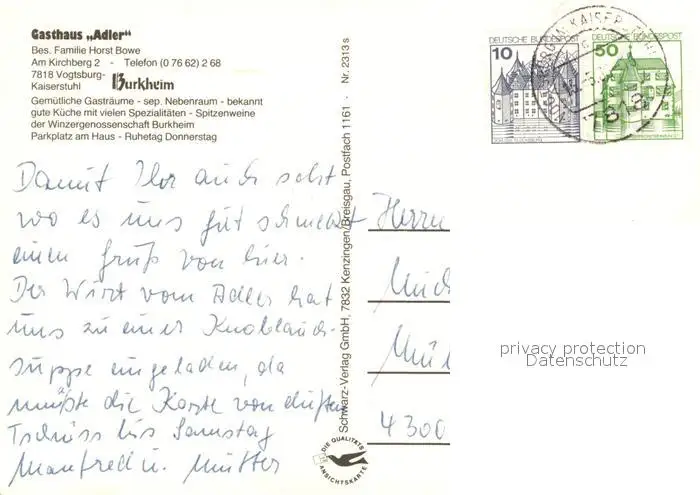 Gasthaus „Adler“
Bes. Familie Horst Bowe
Am Kirchberg 2 - Telefon (0 76 62) 2 68
7818 Vogtsburg-
Kaiserstuhl Burkheim
Gemütliche Gasträume - sep. Nebenraum - bekannt
gute Küche mit vielen Spezialitäten - Spitzenweine
der Winzergenossenschaft Burkheim
Parkplatz am Haus - Ruhetag Donnerstag
Damit Ihr auch seht
wo es uns gut schmeckt
einen Gruß von hier.
Der Wirt vom Adler hat
uns zu einer Knoblauch-
suppe eingeladen, da
müßte die Karte von duften
Tschüss bis Samstag
Manfred u. Mutter
Schwarz-Verlag GmbH, 7832 Kenzingen/Breisgau, Postfach 1161 - Nr. 2313 s
DIE QUALITÄTS
ANSICHTSKARTE
DEUTSCHE BUNDESPOST
10
DEUTSCHE BUNDESPOST
50
7818
Herrn
4300
privacy protection
Datenschutz